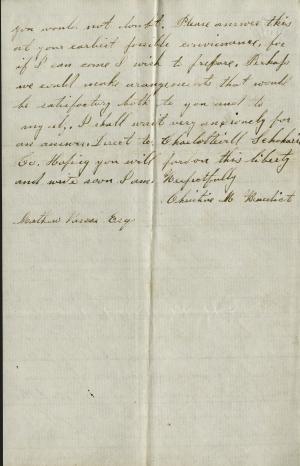 you would not doubt. Please answer this
at your earliest possible convienance, for
if I can come I wish to prepare. Perhaps
we could make arangements that would
be satisfactory both to you and to
my self. I shall wait very anxiously for
an answer. Direct to Charlotteville Schoharie
Co. Hoping you will pardon this liberty
and write soon I am Respectfully
Christine M Benedict
Mathew Vassar Esq.